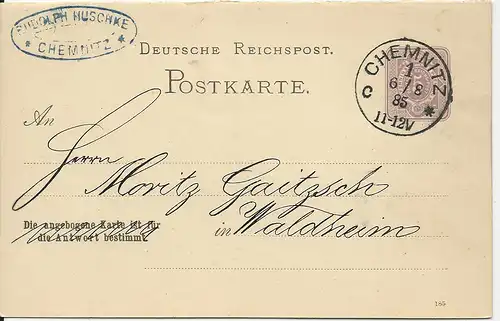 RUDOLPH HUSCHKE
* CHEMNITZ *
DEUTSCHE REICHSPOST.
POSTKARTE.
CHEMNITZ
1
6/8
85
11-12V
C *
An
Herrn
Moritz Gaitzsch
Die angebogene Karte ist für
die Antwort bestimmt.
in Waldheim
185